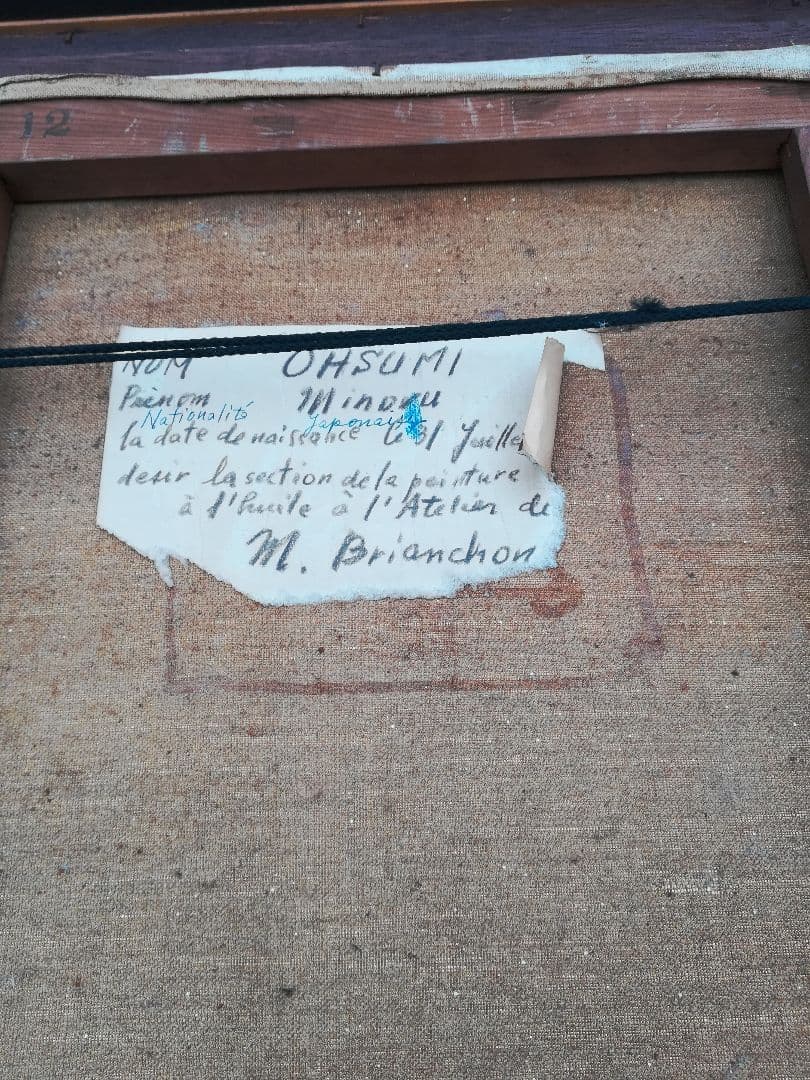 12
NOM OHSUMI
Prénom Minoru
Nationalité Japonaise
la date de naissance le 31 Juille
desir la section de la peinture
à l'huile à l'Atelier de
M. Brianchon